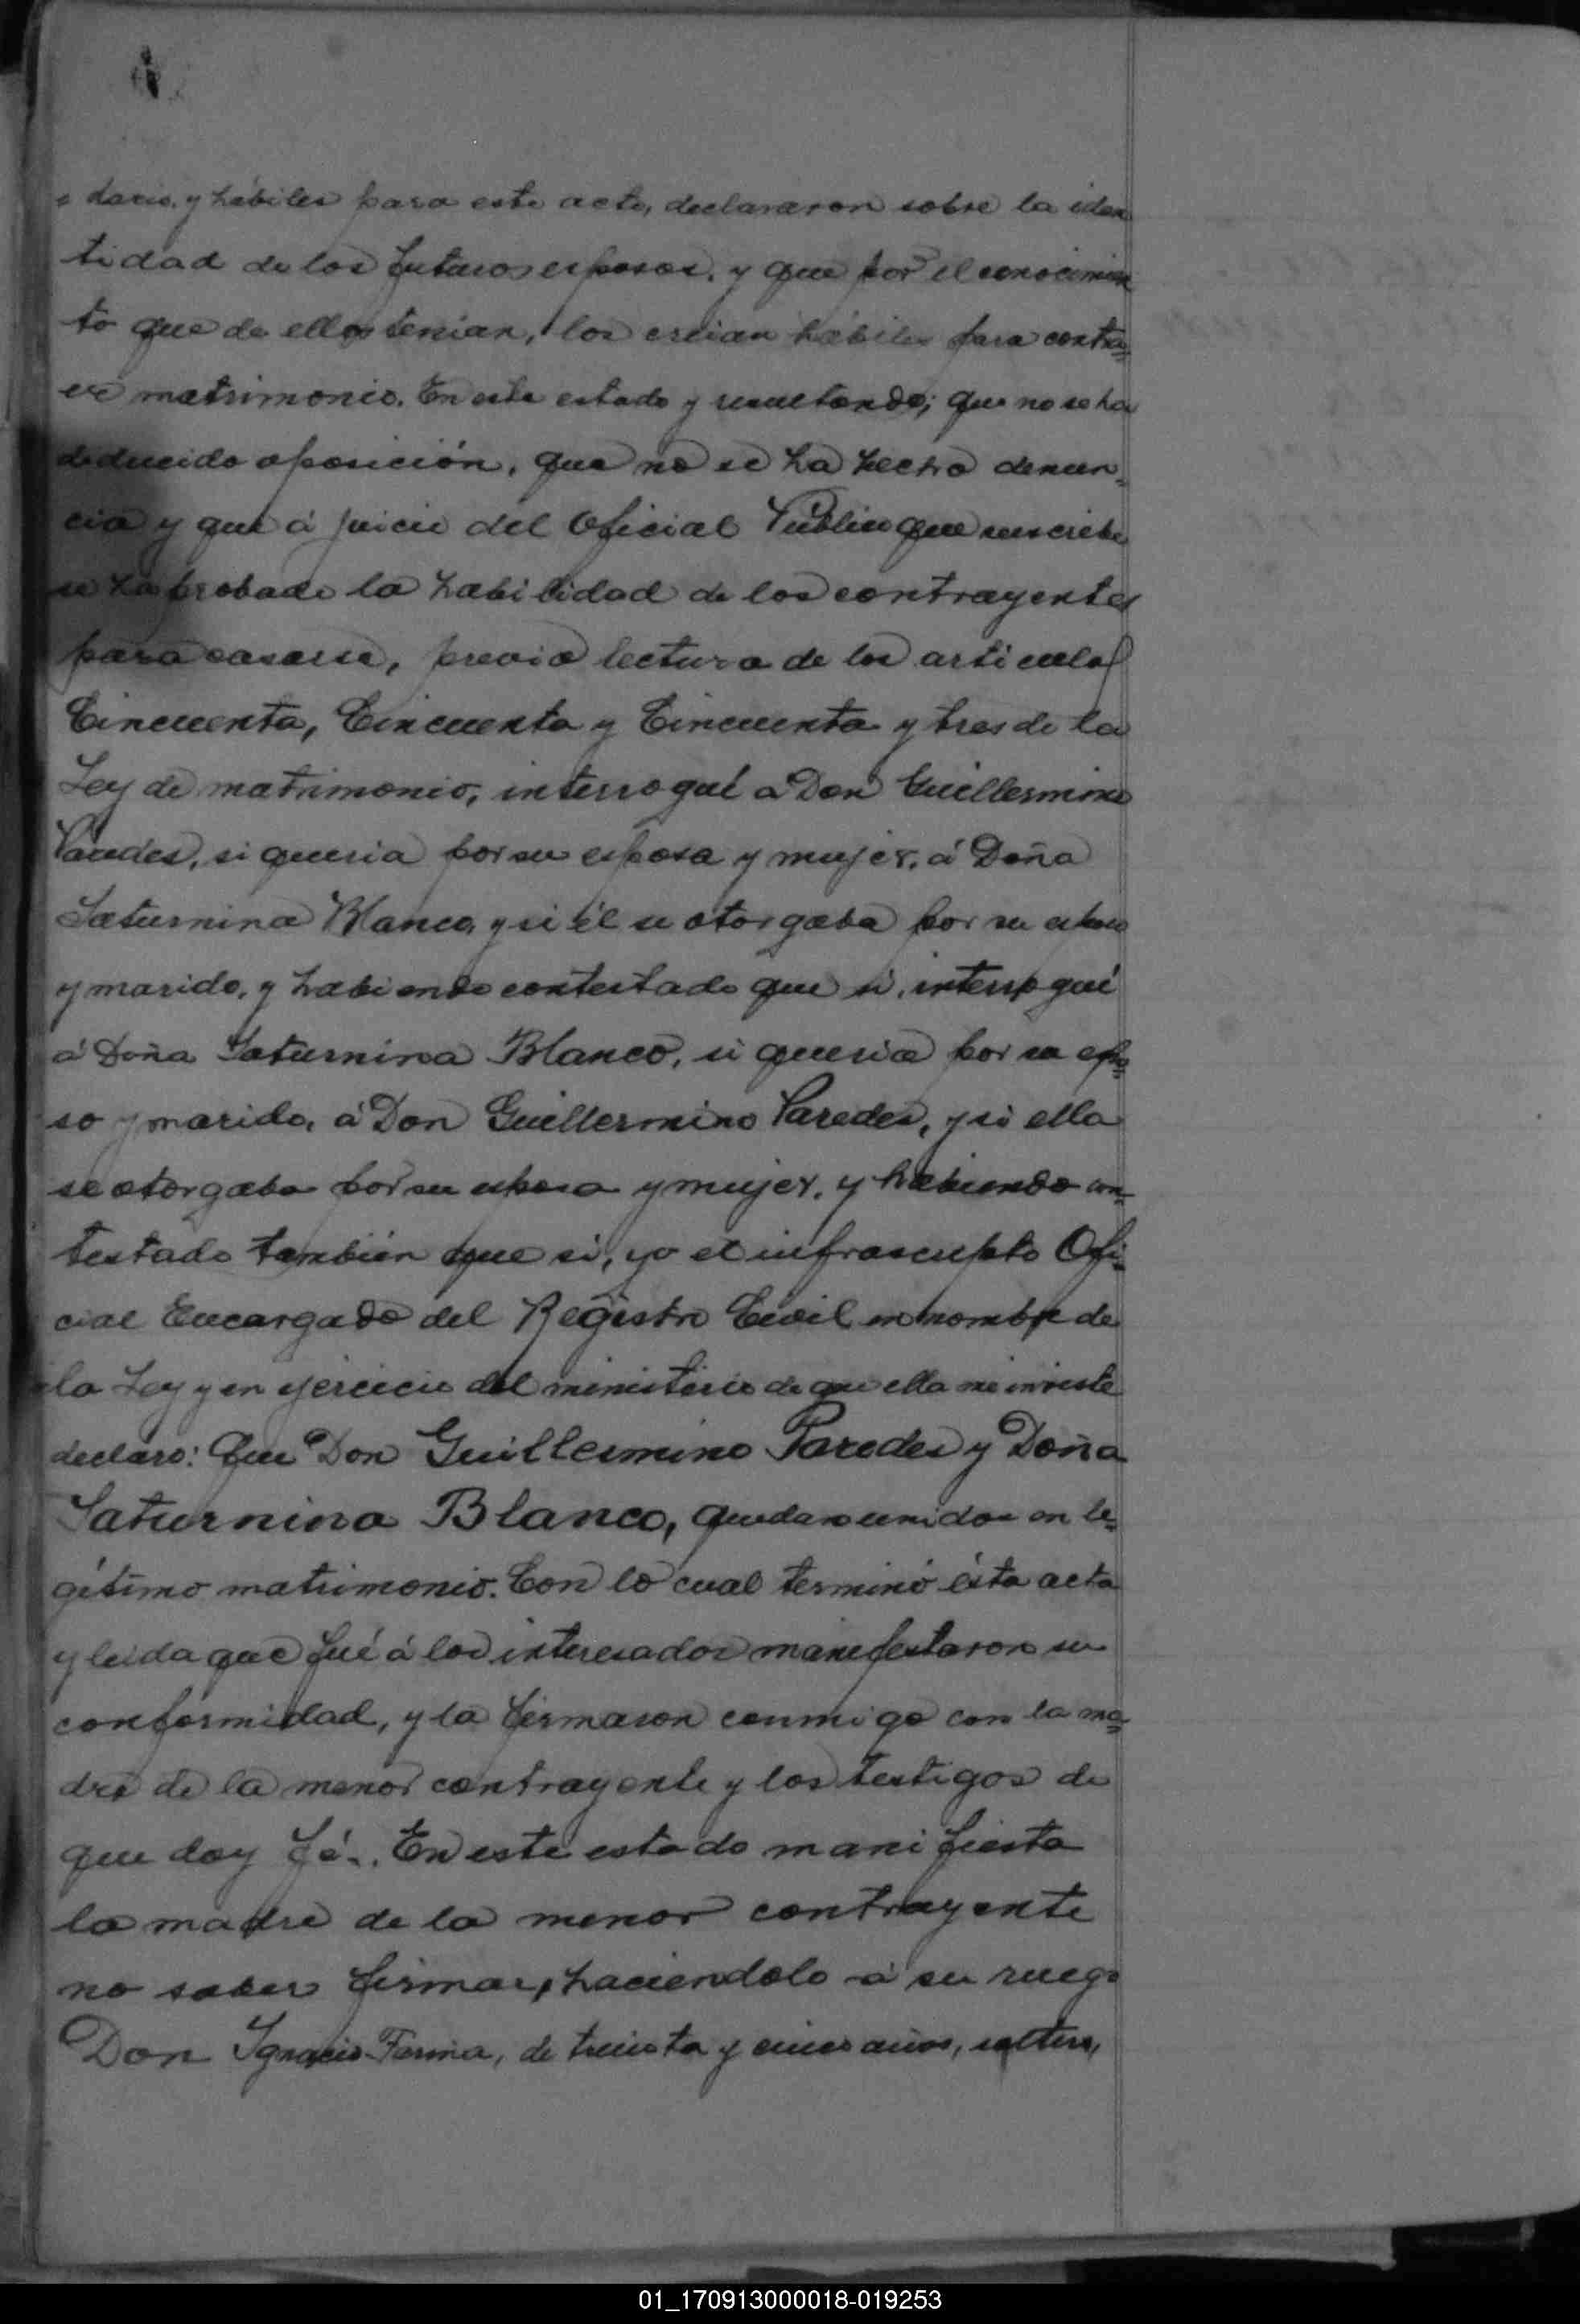 dario, y hábiles para este acto, declararon sobre la iden
tidad de los futuros esposos, y que por el conocimien
to que de ellos tenian, los creian hábiles para contra=
er matrimonio. En este estado y resultando; que no se ha
deducido oposición, que no se ha hecho denun=
cia y que á juicio del Oficial Publico que suscribe
se ha probado la habilidad de los contrayentes
para casarse, previa lectura de los articulos
Cincuenta, Cincuenta y Cincuenta y tres de la
Ley de matrimonio, interrogué a Don Guillermino
Paredes, si queria por su esposa y mujer, á Doña
Saturnina Blanco, y si él se otorgaba por su esposo
y marido, y habiendo contestado que si, interrogué
á Doña Saturnina Blanco, si queria por su espo=
so y marido, á Don Guillermino Paredes, y si ella
se otorgaba por su esposa y mujer, y habiendo con=
testado también que si, yo el infrascripto Ofi=
cial Encargado del Registro Civil en nombre de
la Ley y en ejercicio del ministerio de que ella me inviste
declaro: Que Don Guillermino Paredes y Doña
Saturnina Blanco, quedan unidos en le=
gítimo matrimonio. Con lo cual terminó ésta acta
y leida que fué á los interesados manifestaron su
conformidad, y la firmaron conmigo con la ma=
dre de la menor contrayente y los testigos de
que doy fé. En este estado manifiesta
la madre de la menor contrayente
no saber firmar, haciendolo á su ruego
Don Ignacio Farina, de treinta y cinco años, soltero,
01_170913000018-019253